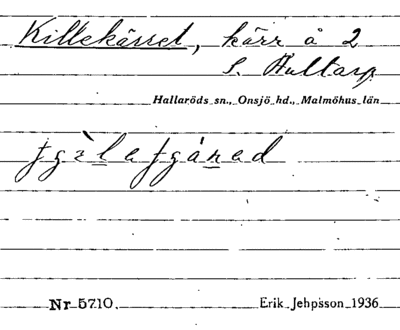 Killekärret, kärr å 2
S. Hultarp
Hallaröds sn., Onsjö hd., Malmöhus län
Nr 5710.
Erik Jehpsson 1936